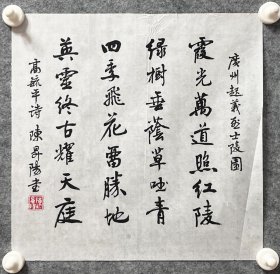 廣州起義烈士陵園
霞光萬道照紅陵
綠樹垂蔭草吐青
四季飛花留勝地
英靈終古耀天庭
高毓平诗 陳昇陽書